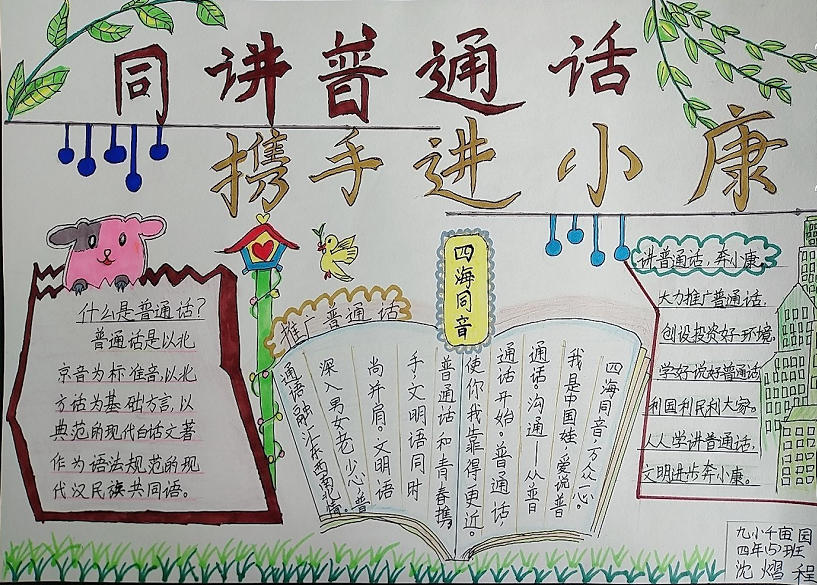 同讲普通话
携手进小康
什么是普通话?
普通话是以北
京音为标准音,以北
方话为基础方言,以
典范的现代白话文著
作为语法规范的现
代汉民族共同语。
推广普通话
四海同音
四海同音,万众一心。
我是中国娃,爱说普
通话沟通——从亚日
通话开始。普通话
使你我靠得更近。
普通话和青春携
手,文明语同时
尚并肩。文明语
深入男女老少心,普
通语融汇东西南北情。
讲普通话,奔小康。
大力推广普通话,
创设投资好环境。
学好说好普通话
利国利民利大家。
人人学讲普通话,
文明进步奔小康。
九小千亩园
四年(5)班
沈熠程